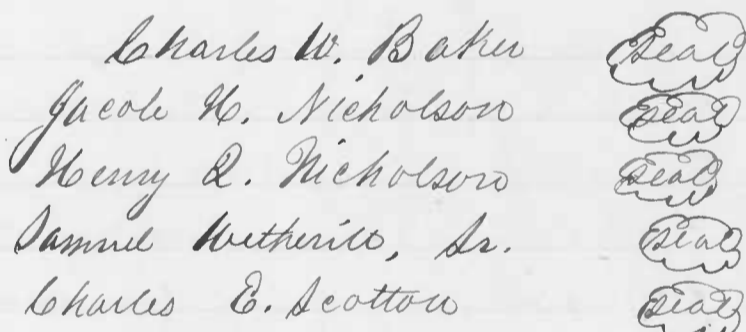 Charles W. Baker seal
Jacob H. Nicholson seal
Henry Q. Nicholson seal
Samuel Wetherill, Sr. seal
Charles E. Scotton seal